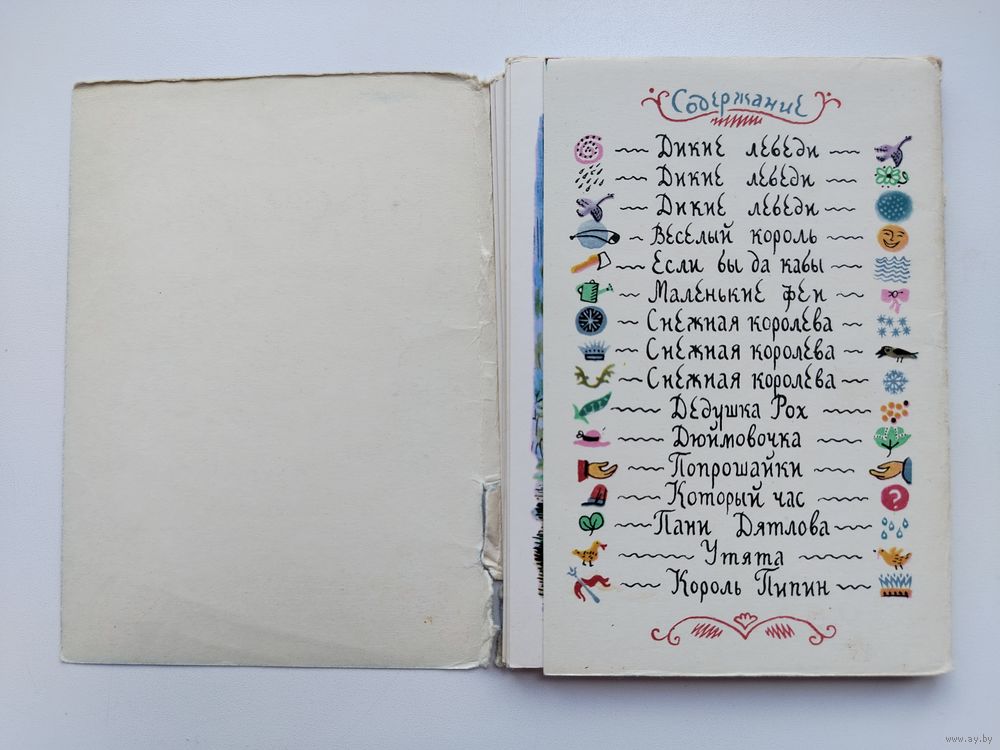 Содержание
Дикие лебеди
Дикие лебеди
Дикие лебеди
Веселый король
Если бы да кабы
Маленькие феи
Снежная королева
Снежная королева
Снежная королева
Дедушка Рох
Дюймовочка
Попрошайки
Который час
?
Пани Дятлова
Утята
Король Пипин
www.ay.by